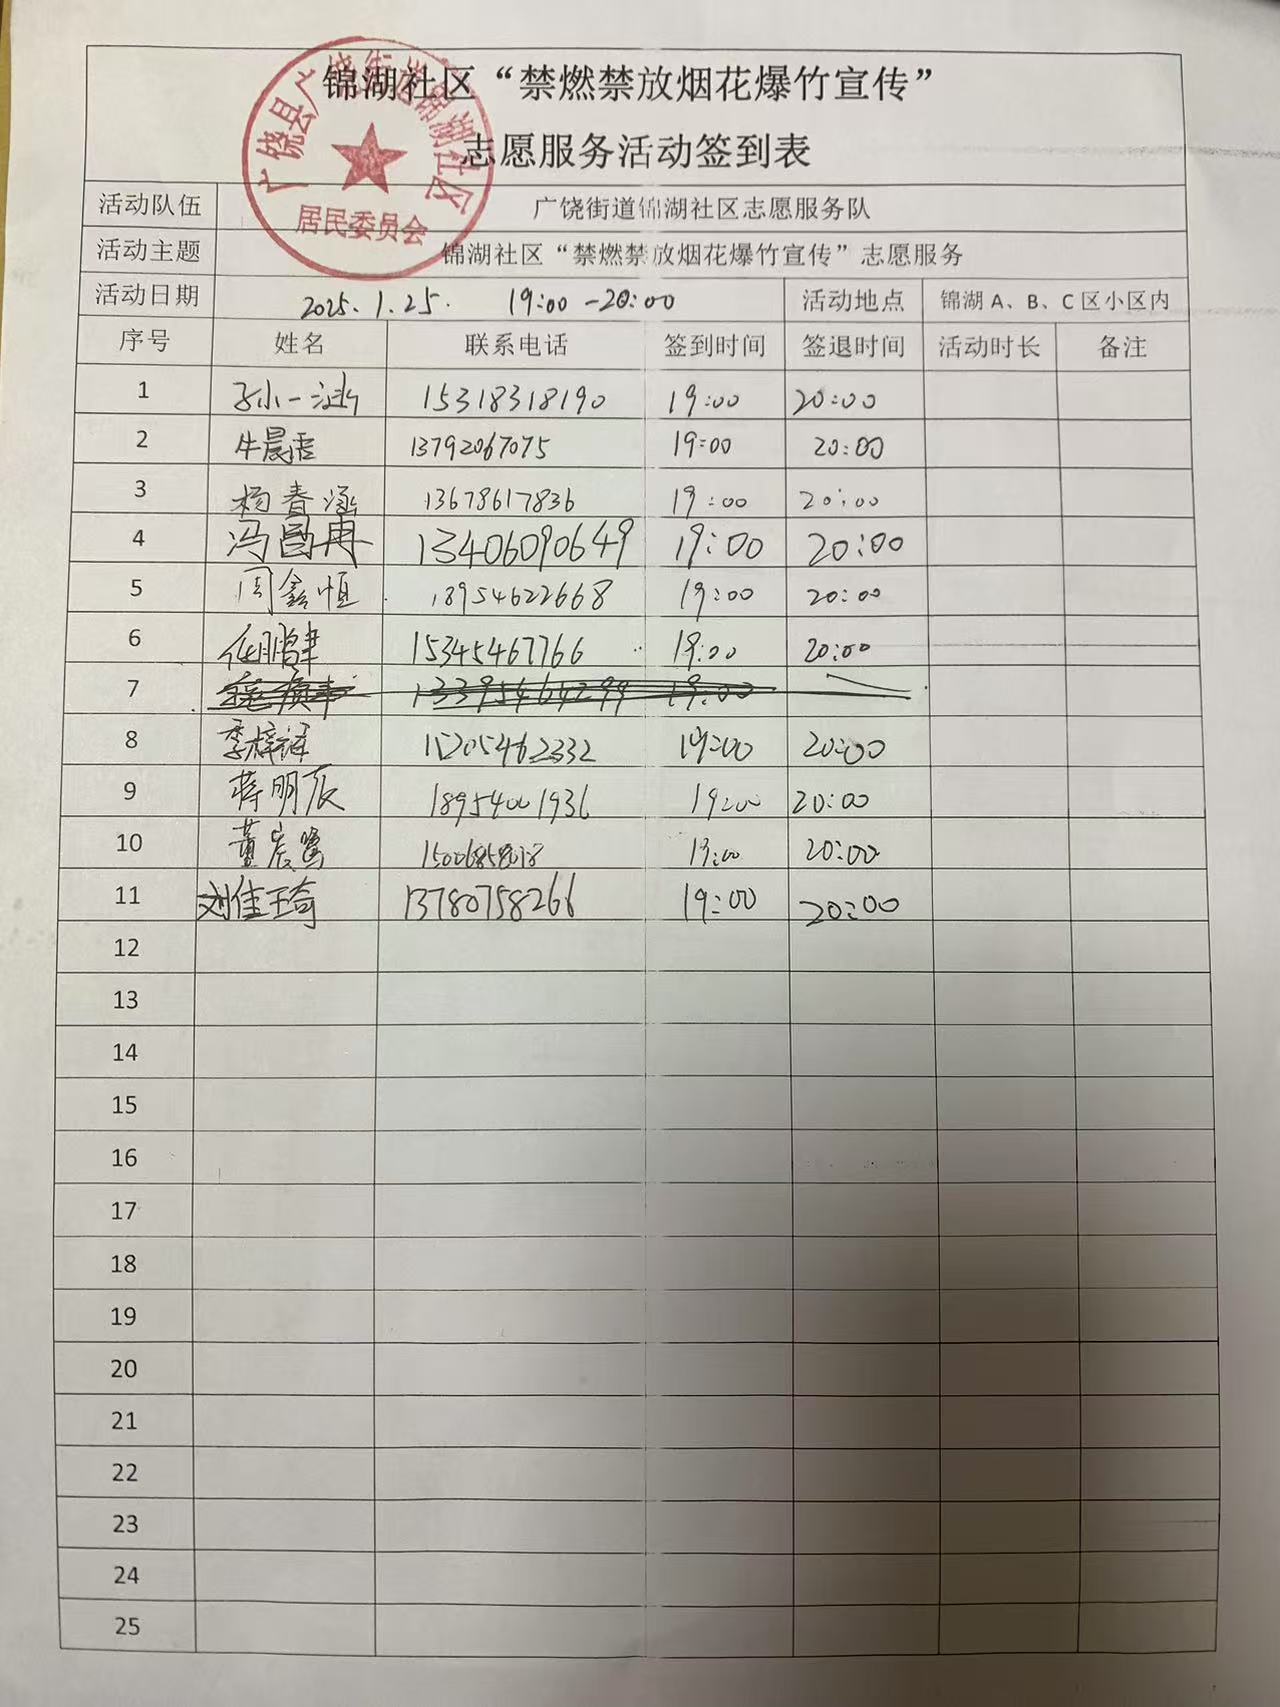 锦湖社区“禁燃禁放烟花爆竹宣传”
志愿服务活动签到表
广饶县广饶街道锦湖社区
居民委员会
活动队伍 广饶街道锦湖社区志愿服务队
活动主题 锦湖社区“禁燃禁放烟花爆竹宣传”志愿服务
活动日期 2025.1.25. 19:00-20:00 活动地点 锦湖A、B、C区小区内
序号 姓名 联系电话 签到时间 签退时间 活动时长 备注
1 孙一涵 15318318190 19:00 20:00
2 牛晨语 13792067075 19:00 20:00
3 杨春涵 13678617836 19:00 20:00
4 冯冉 13406090649 19:00 20:00
5 周鑫恒 18954622668 19:00 20:00
6 任 15345467766 19:00 20:00
7 19:00
8 李梓 15205462332 19:00 20:00
9 蒋明辰 18954001936 19:00 20:00
10 董宸 19:00 20:00
11 刘佳琦 13780758266 19:00 20:00
12
13
14
15
16
17
18
19
20
21
22
23
24
25